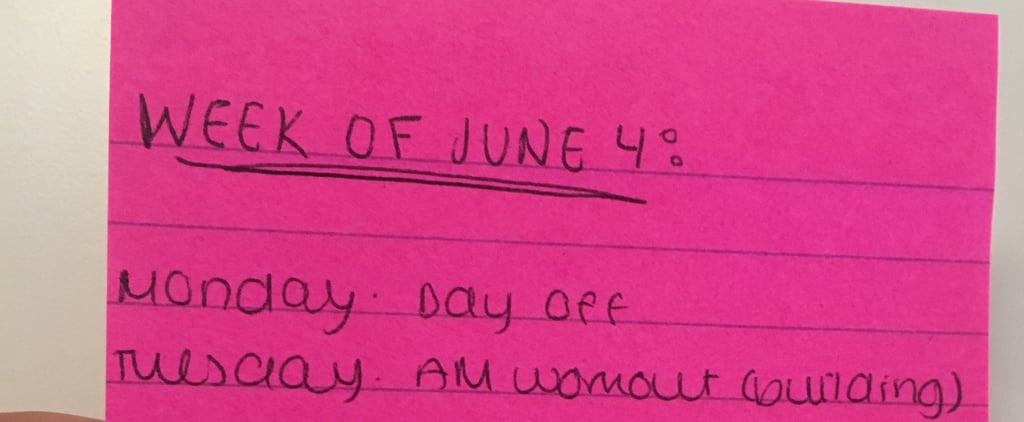 WEEK OF JUNE 4:
Monday. Day Off
Tuesday. AM workout (building)